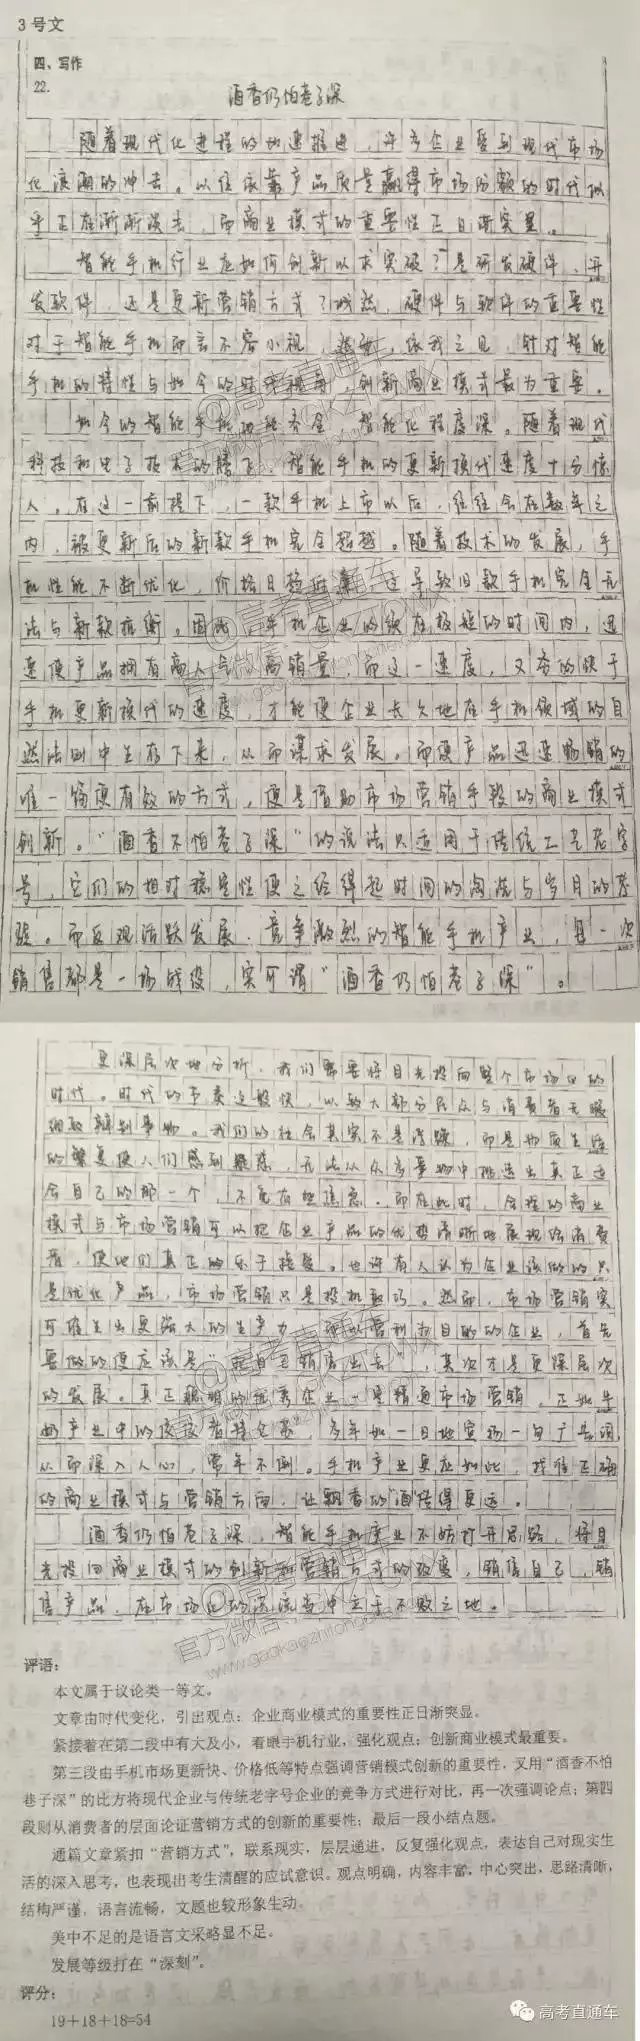 3号文
四、写作
22.
酒香仍怕巷子深
随着现代化进程的加速推进，许多企业受到现代市场
化浪潮的冲击。以往依靠产品质量赢得市场份额的时代似
乎正在渐渐淡去，而商业模式的重要性正日渐突显。
智能手机行业应如何创新以求突破？是研发硬件、开
发软件，还是更新营销方式？诚然，硬件与软件的重要性
对于智能手机而言不容小视，然而，依我之见，针对智能
手机的特性与如今的时代，创新商业模式最为重要。
如今的智能手机功能齐全，智能化程度深。随着现代
科技和电子技术的腾飞，智能手机的更新换代速度十分惊
人。在这一前提下，一款手机上市以后，往往会在数年之
内，被更新后的新款手机完全超越。随着技术的发展，手
机性能不断优化，价格日趋低廉，这导致旧款手机完全无
法与新款抗衡。因此，手机企业必须在极短的时间内，迅
速使产品拥有高人气、高销量，而这一速度，又要的快于
手机更新换代的速度，才能使企业长久地在手机领域的自
然法则中生存下来，从而谋求发展。而使产品迅速畅销的
唯一简便有效的方式，便是借助市场营销手段的商业模式
创新。“酒香不怕巷子深”的说法只适用于传统工艺老字
号，它们的相对稳定性使之经得起时间的淘洗与岁月的考
验。而反观活跃发展、竞争激烈的智能手机产业，每一次
销售都是一场战役，实可谓“酒香仍怕巷子深”。
更深层次地分析，我们需要将目光投向整个市场化的
时代。时代的节奏过快，以致大部分民众与消费者无暇
细致辨别事物。我们的社会其实不是浮躁，而是物质生活
的繁复使人们感到疑惑，无法从众多事物中挑选出真正适
合自己的那一个，不免有些焦虑。而在此时，合理的商业
模式与市场营销可以把企业产品的优势清晰地展现给消费
者，使他们真正的乐于接受。也许有人认为企业该做的只
是优化产品，市场营销只是投机取巧。然而，市场营销实
可催生出更强大的生产力，而以营利为目的的企业，首先
要做的便应该是“把自己销售出去”，其次才是更深层次
的发展。真正聪明的优秀企业一定精通市场营销。正如牛
奶产业中的佼佼者特仑苏，多年如一日地宣扬一句广告词
从而深入人心，常年不倒。手机产业更应如此，找准正确
的商业模式与营销方向，让飘香的“酒”传得更远。
酒香仍怕巷子深，智能手机产业不妨打开思路，将目
光投向商业模式的创新和营销方式的改变，销售自己，销
售产品，在市场化的洪流当中立于不败之地。
评语：
本文属于议论类一等文。
文章由时代变化，引出观点：企业商业模式的重要性正日渐突显。
紧接着在第二段中有大及小，着眼手机行业，强化观点：创新商业模式最重要。
第三段由手机市场更新快、价格低等特点强调营销模式创新的重要性，又用“酒香不怕
巷子深”的比方将现代企业与传统老字号企业的竞争方式进行对比，再一次强调论点；第四
段则从消费者的层面论证营销方式的创新的重要性；最后一段小结点题。
通篇文章紧扣“营销方式”，联系现实，层层递进，反复强化观点，表达自己对现实生
活的深入思考，也表现出考生清醒的应试意识。观点明确，内容丰富，中心突出，思路清晰，
结构严谨，语言流畅，文题也较形象生动。
美中不足的是语言文采略显不足。
发展等级打在“深刻”。
评分：
19+18+18=54
高考直通车